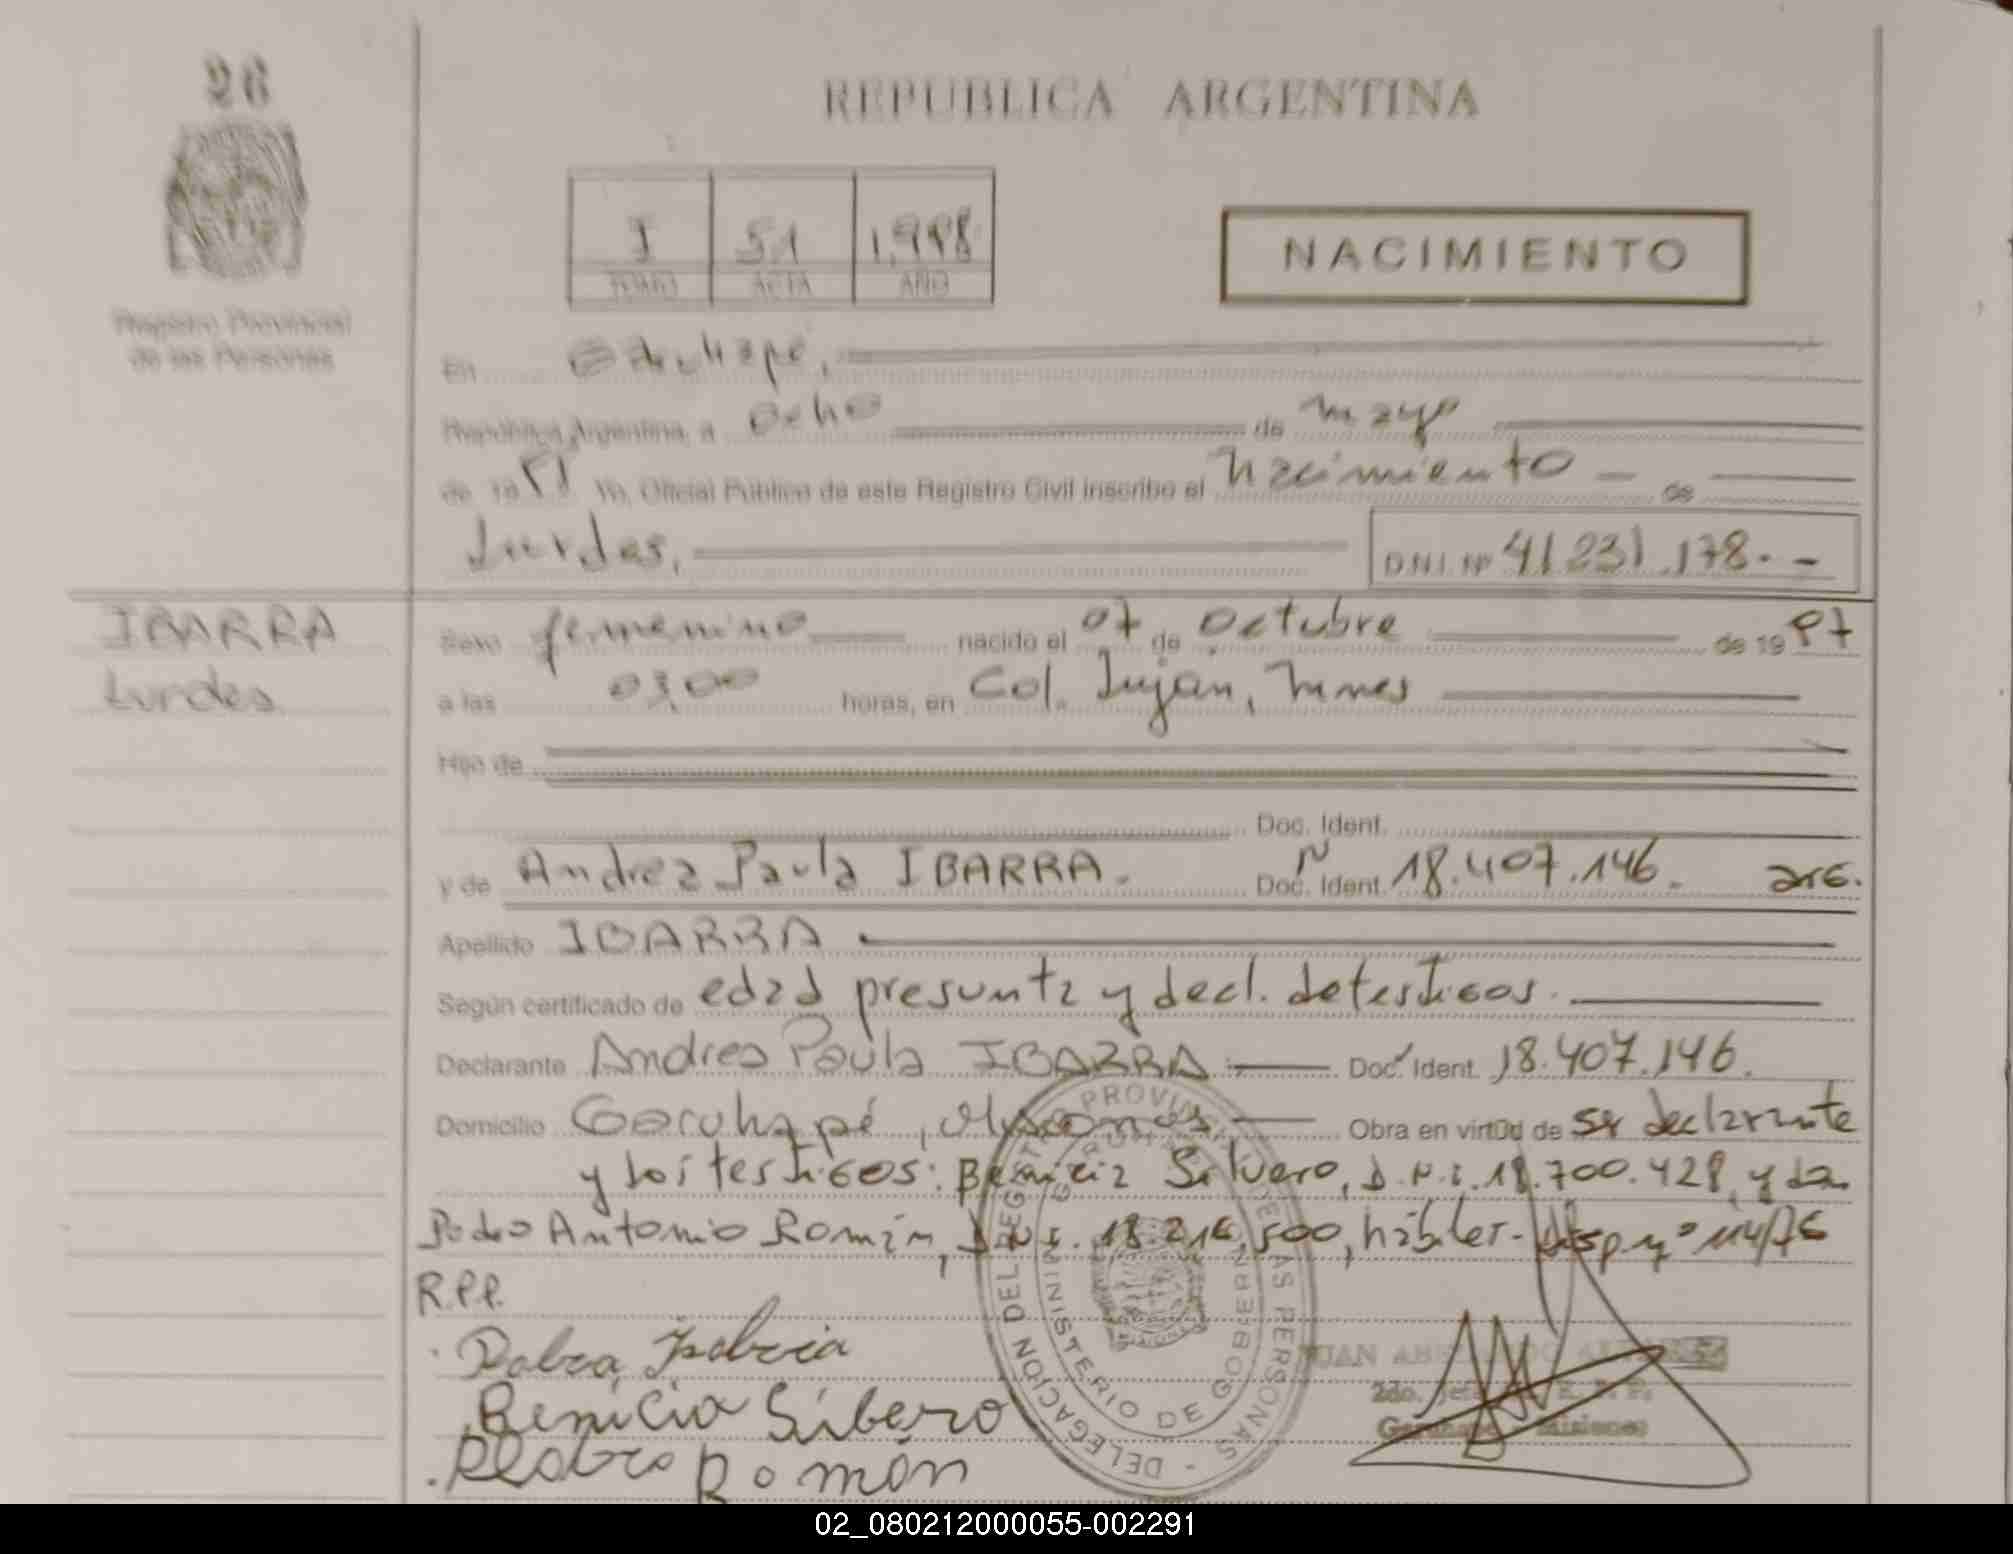 26
REPUBLICA ARGENTINA
I 51 1,998
TOMO ACTA AÑO
NACIMIENTO
Registro Provincial
de las Personas
En Garuhapé,
República Argentina, a ocho de mayo
de 19 98 Yo, Oficial Público de este Registro Civil inscribo el nacimiento de
Lurdes, DNI Nº 41.231.178.-
IBARRA
Lurdes
Sexo femenino nacido el 07 de Octubre de 19 97
a las 03,00 horas, en Col. Luján, Mnes
Hijo de
Doc. Ident.
y de Andrea Paula IBARRA. Doc. Ident. Nº 18.407.146. arg.
Apellido IBARRA
Según certificado de edad presunta y decl. de testigos.
Declarante Andrea Paula IBARRA Doc. Ident. 18.407.146.
Domicilio Garuhapé, Misiones Obra en virtud de ser declarante
y los testigos: Benicia Silvero, D.N.I. 18.700.428, y don
Pedro Antonio Román, D.N.I. 18.216.500, hábiles.- Disp. nº 114/76
R.P.P.
Benicia Sibero
Pedro Román
DELEGACION DEL REGISTRO PROVINCIAL DE LAS PERSONAS
MINISTERIO DE GOBIERNO
JUAN
2do. Jefe R. P. P.
Garuhapé Misiones
02_080212000055-002291